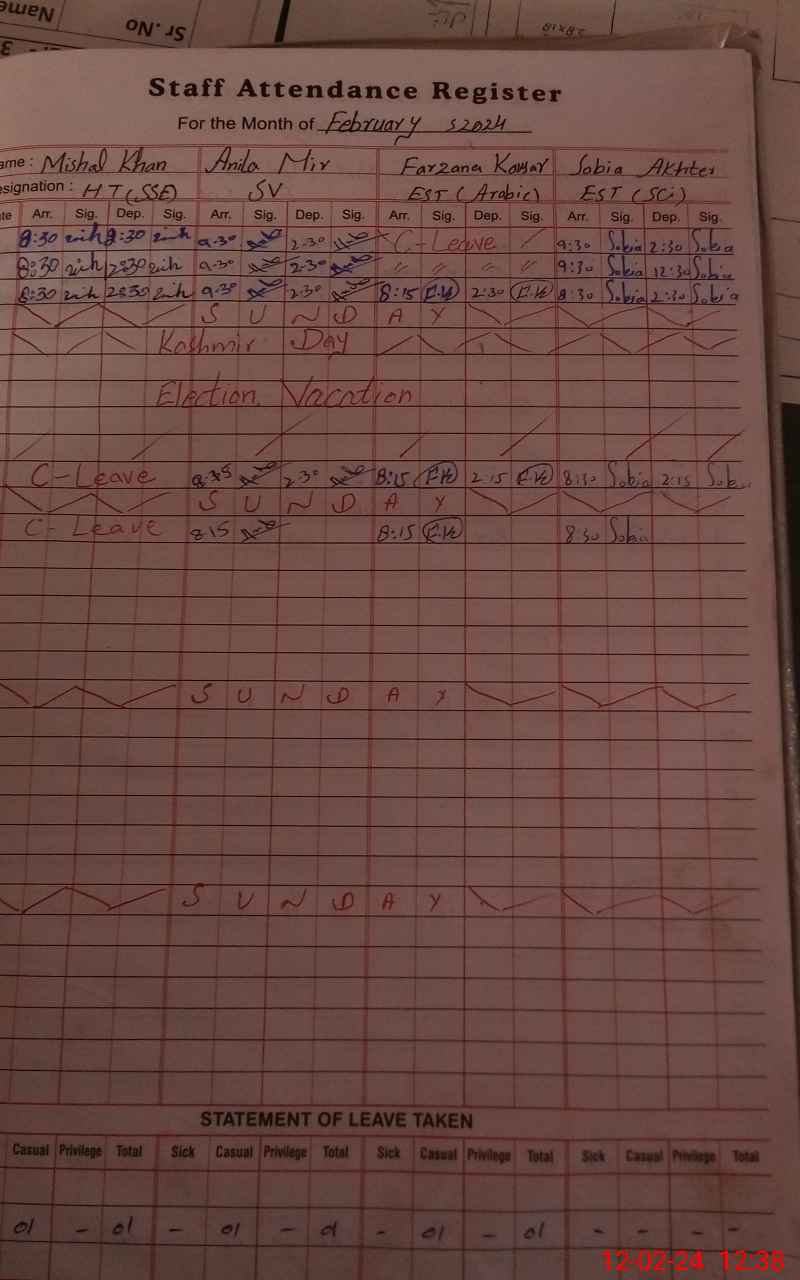 Name
Sr. No.
Staff Attendance Register
For the Month of February 2024
ame : Mishal Khan Anila Mir Farzana Kousar Sobia Akhter
esignation : HT(SSE) SV EST (Arabic) EST (Sci)
te Arr. Sig. Dep. Sig. Arr. Sig. Dep. Sig. Arr. Sig. Dep. Sig. Arr. Sig. Dep. Sig.
8:30 2:30 9-30 2-30 C-Leave 9:30 Sobia 2:30 Sobia
8:30 2:30 9-30 2-30 " " " " 9:30 Sobia 12:30 Sobia
8:30 2:30 9-30 2-30 8:15 2:30 8:30 Sobia 2:30 Sobia
S U N D A Y
Kashmir Day
Election Vacation
C-Leave 2-30 8:15 2:15 8:30 Sobia 2:15 Sobia
S U N D A Y
C-Leave 8:15 8:15 8:30 Sobia
S U N D A Y
S U N D A Y
STATEMENT OF LEAVE TAKEN
Casual Privilege Total Sick Casual Privilege Total Sick Casual Privilege Total Sick Casual Privilege Total
01 - 01 - 01 - 01 - 01 - 01 - - - -
12-02-24 12:38